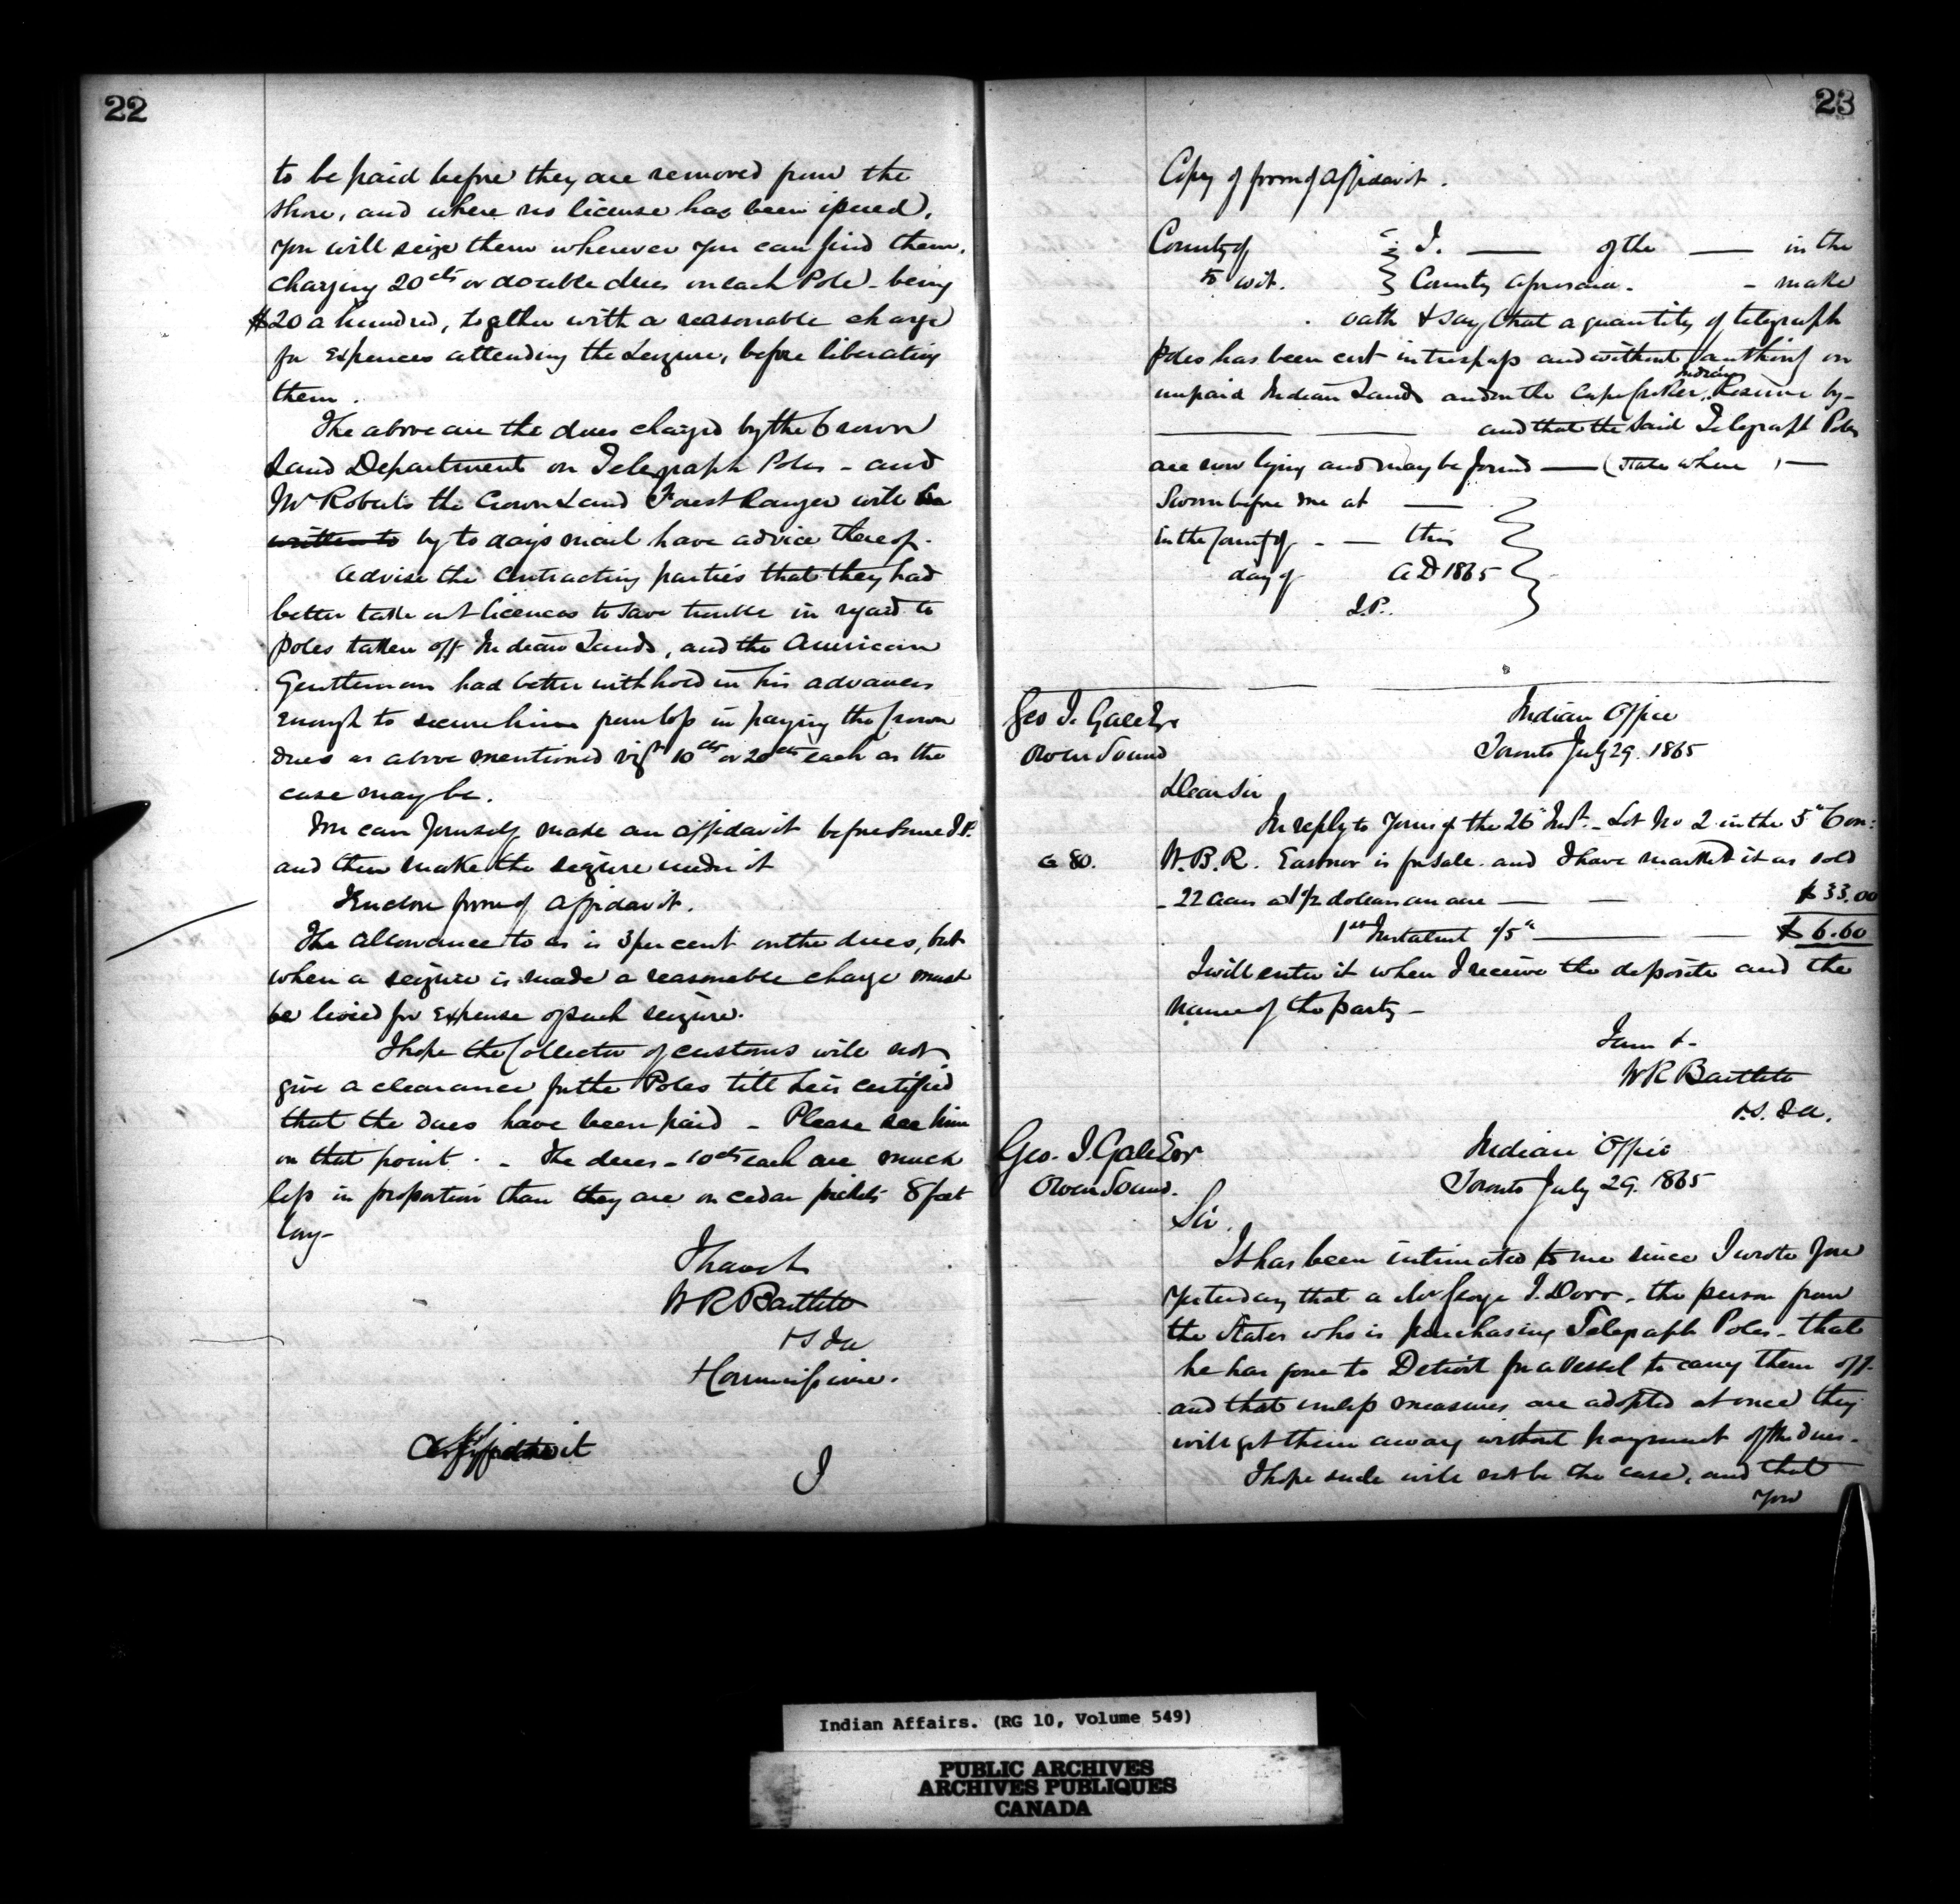 22
to be paid before they are removed from the
shore, and where no license has been issued,
you will seize them wherever you can find them,
charging 20cts or double dues on each Pole - being
$20 a hundred, together with a reasonable charge
for expences attending the seizure, before liberating
them.
The above are the dues charged by the Crown
Land Department on Telegraph Poles - and
Mr Roberts the Crown Land Forest Ranger will be
written to by to days mail have advice thereof.
Advise the contracting parties that they had
better take out licences to save trouble in regard to
poles taken off Indian Lands, and the American
Gentleman had better withhold in his advances
enough to secure him from loss in paying the Crown
dues as above mentioned vizt 10cts or 20cts each as the
case may be.
You can yourself make an affidavit before some J.P.
and then make the seizure under it
I enclose form of affidavit.
The allowance to us is 3 per cent on the dues, but
when a seizure is made a reasonable charge must
be levied for expense of such seizure.
I hope the Collector of customs will not
give a clearance for the Poles till he is certified
that the dues have been paid - Please see him
on that point. - The dues - 10cts each are much
less in proportion than they are on cedar pickets 8 feet
long -
I have &
W R Bartlett
V S I A
& Commissioner.
Affidavit
I
23
Copy of form of Affidavit.
County of I. — of the — in the
to wit. County aforesaid. - make
oath & say that a quantity of telegraph
poles has been cut in trespass and without authority on
unpaid Indian Lands and on the Cape Croker Indian Reserve by -
— — and that the said Telegraph Poles
are now lying and may be found — (state where) —
Sworn before me at —
in the County of - — this
day of AD 1865
J.P.
Geo J. Gale Esqr
Owen Sound
Indian Office
Toronto July 29. 1865
Dear Sir
In reply to yours of the 26th Inst. - Lot No 2 in the 5th Con:
G 80.
W.B.R. Eastnor is for sale. and I have marked it as sold
- 22 acres at 1 1/2 dollars an acre — — $33.00
1st Instalment 1/5th — — $6.60
I will enter it when I receive the deposite and the
name of the party -
I am &-
W R Bartlett
V.S. I A.
Geo. J. Gale Esqr
Owen Sound.
Indian Office
Toronto July 29. 1865
Sir.
It has been intimated to me since I wrote you
yesterday that a Mr George J. Dorr - the person from
the States who is purchasing Telegraph Poles - that
he has gone to Detroit for a Vessel to carry them off -
and that unless measures are adopted at once they
will get them away without payment of the dues -
I hope such will not be the case, and that
you
Indian Affairs. (RG 10, Volume 549)
PUBLIC ARCHIVES
ARCHIVES PUBLIQUES
CANADA